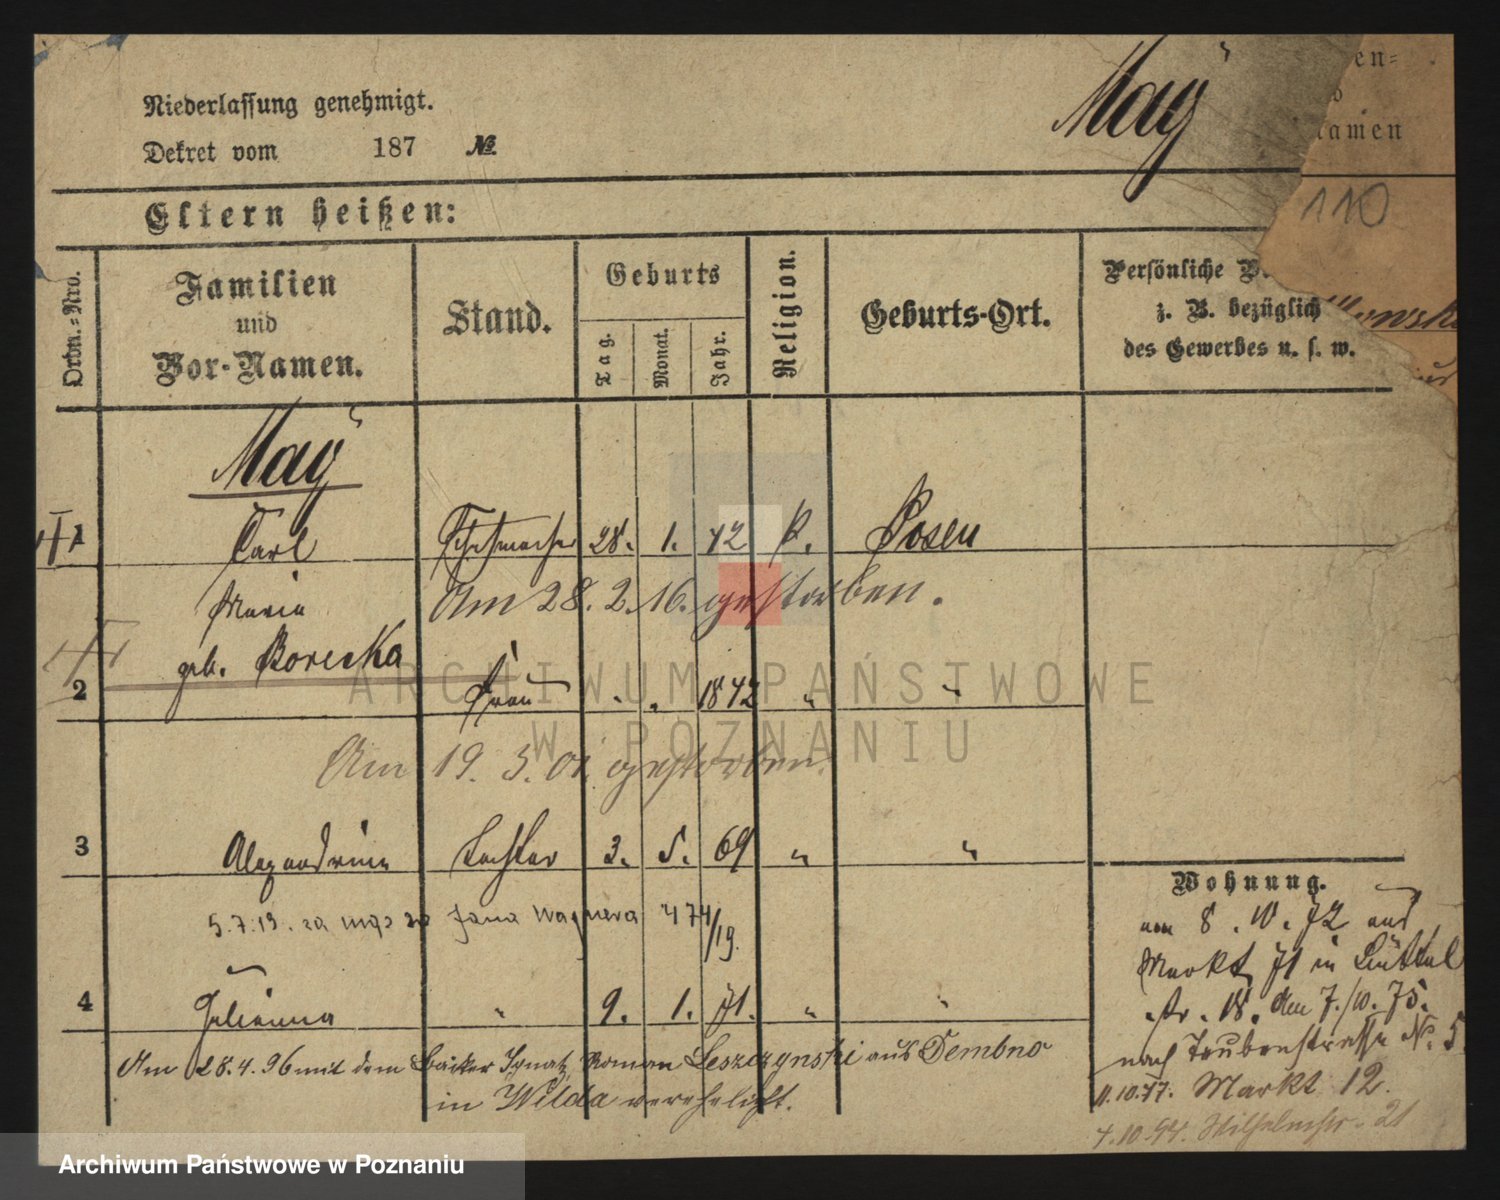 Niederlassung genehmigt.
Dekret vom 187 №
May
en=
amen
110
Eltern heißen:
Ordn.=Nro.
Familien
und
Vor-Namen.
Stand.
Geburts
Tag.
Monat.
Jahr.
Religion.
Geburts-Ort.
Persönliche
z. B. bezüglich
des Gewerbes u. s. w.
May
1 Carl 28. 1. 42 k. Posen
Am 28. 2. 16. gestorben.
Maria
geb. Borecka
2 Frau " " 1842 " "
Am 19. 3. 01 gestorben.
3 Alexandrine Tochter 3. 5. 69 " "
5.7.19. za mąż za Jana Wagnera 474/19.
4 Julianna " 9. 1. 71. " "
Am 28.4.96 mit dem Bäcker Ignatz Roman Leszczynski aus Dembno
in Wilda verehelicht.
Wohnung.
am 8. 10. 72 aus
Markt 71 in Büttel
str. 18. den 7./10. 75.
nach Taubenstrasse No. 5
11.10.77. Markt 12.
4.10.94. Wilhelmstr. 21
ARCHIWUM PAŃSTWOWE
W POZNANIU
Archiwum Państwowe w Poznaniu